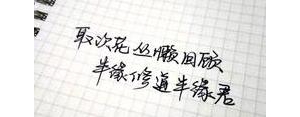 取次花丛懒回顾
半缘修道半缘君